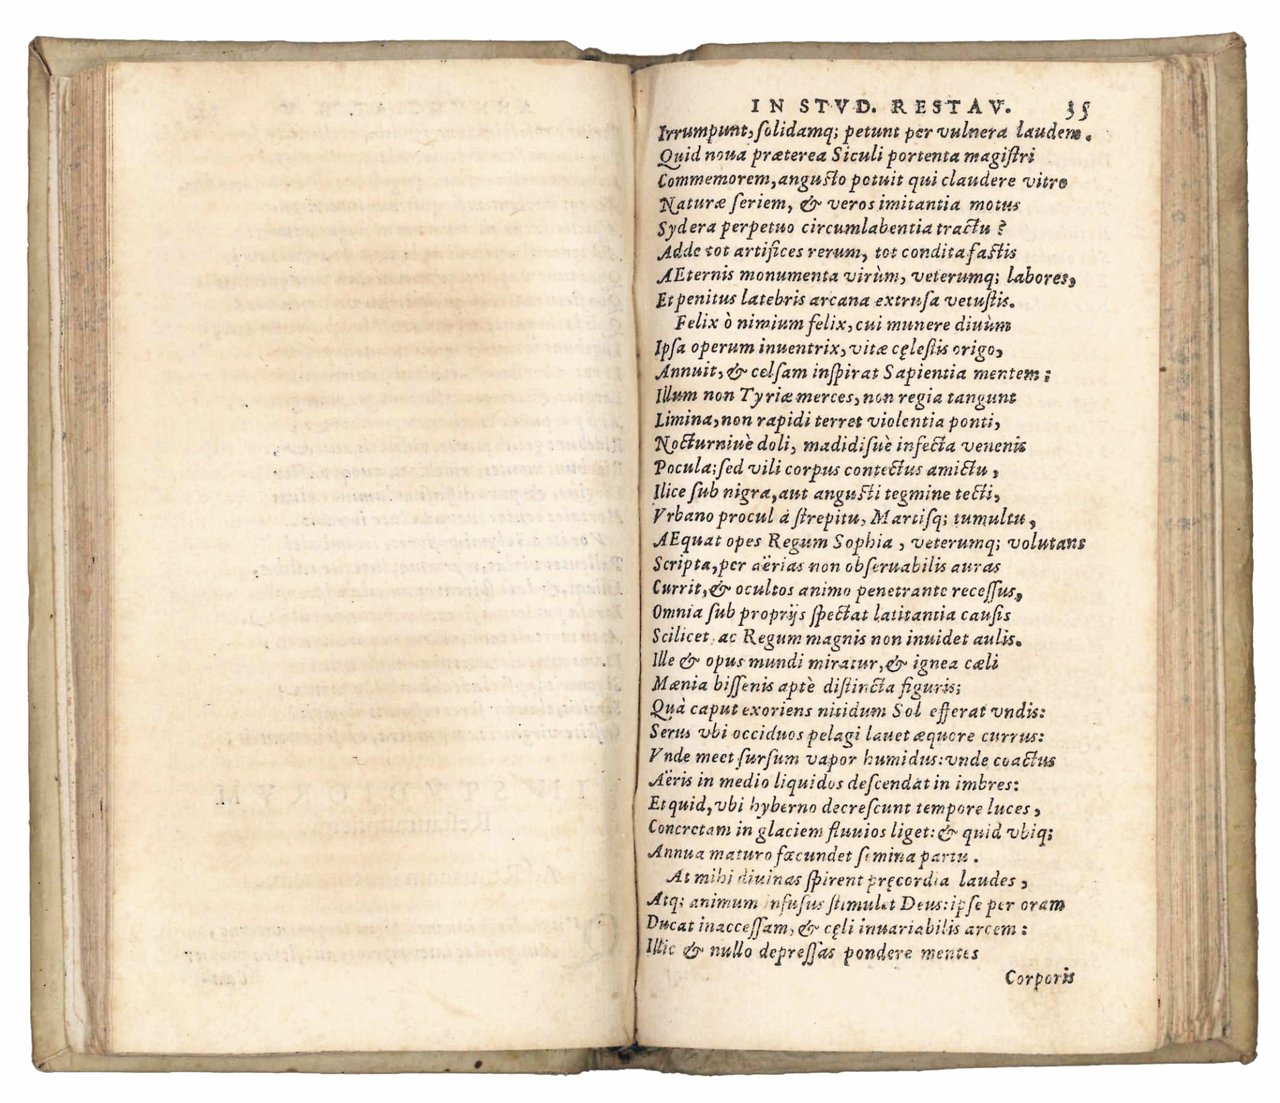 IN STVD. RESTAV. 35
Irrumpunt, ſolidamq; petunt per vulnera laudem.
Quid noua præterea Siculi portenta magiſtri
Commemorem, anguſto potuit qui claudere vitro
Naturæ ſeriem, & veros imitantia motus
Sydera perpetuo circumlabentia tractu?
Adde tot artifices rerum, tot condita faſtis
AEternis monumenta virùm, veterumq; labores,
Et penitus latebris arcana extruſa vetuſtis.
Felix ò nimium felix, cui munere diuùm
Ipſa operum inuentrix, vitæ cęleſtis origo,
Annuit, & celſam inſpirat Sapientia mentem:
Illum non Tyriæ merces, non regia tangunt
Limina, non rapidi terret violentia ponti,
Nocturniuè doli, madidiſuè infecta venenis
Pocula; ſed vili corpus contectus amictu,
Ilice ſub nigra, aut anguſti tegmine tecti,
Vrbano procul à ſtrepitu, Martiſq; tumultu,
AEquat opes Regum Sophia, veterumq; volutans
Scripta, per aërias non obſeruabilis auras
Currit, & ocultos animo penetrante receſſus,
Omnia ſub proprijs ſpectat latitantia cauſis
Scilicet ac Regum magnis non inuidet aulis.
Ille & opus mundi miratur, & ignea cæli
Mænia biſſenis aptè diſtincta figuris;
Quà caput exoriens nitidum Sol efferat vndis:
Serus vbi occiduos pelagi lauet æquore currus:
Vnde meet ſurſum vapor humidus: vnde coactus
Aëris in medio liquidos deſcendat in imbres:
Et quid, vbi hyberno decreſcunt tempore luces,
Concretam in glaciem fluuios liget: & quid vbiq;
Annua maturo fœcundet ſemina partu.
At mihi diuinas ſpirent pręcordia laudes,
Atq; animum infuſus ſtimulet Deus: ipſe per oram
Ducat inacceſſam, & cęli inuariabilis arcem:
Illic & nullo depreſſas pondere mentes
Corporis